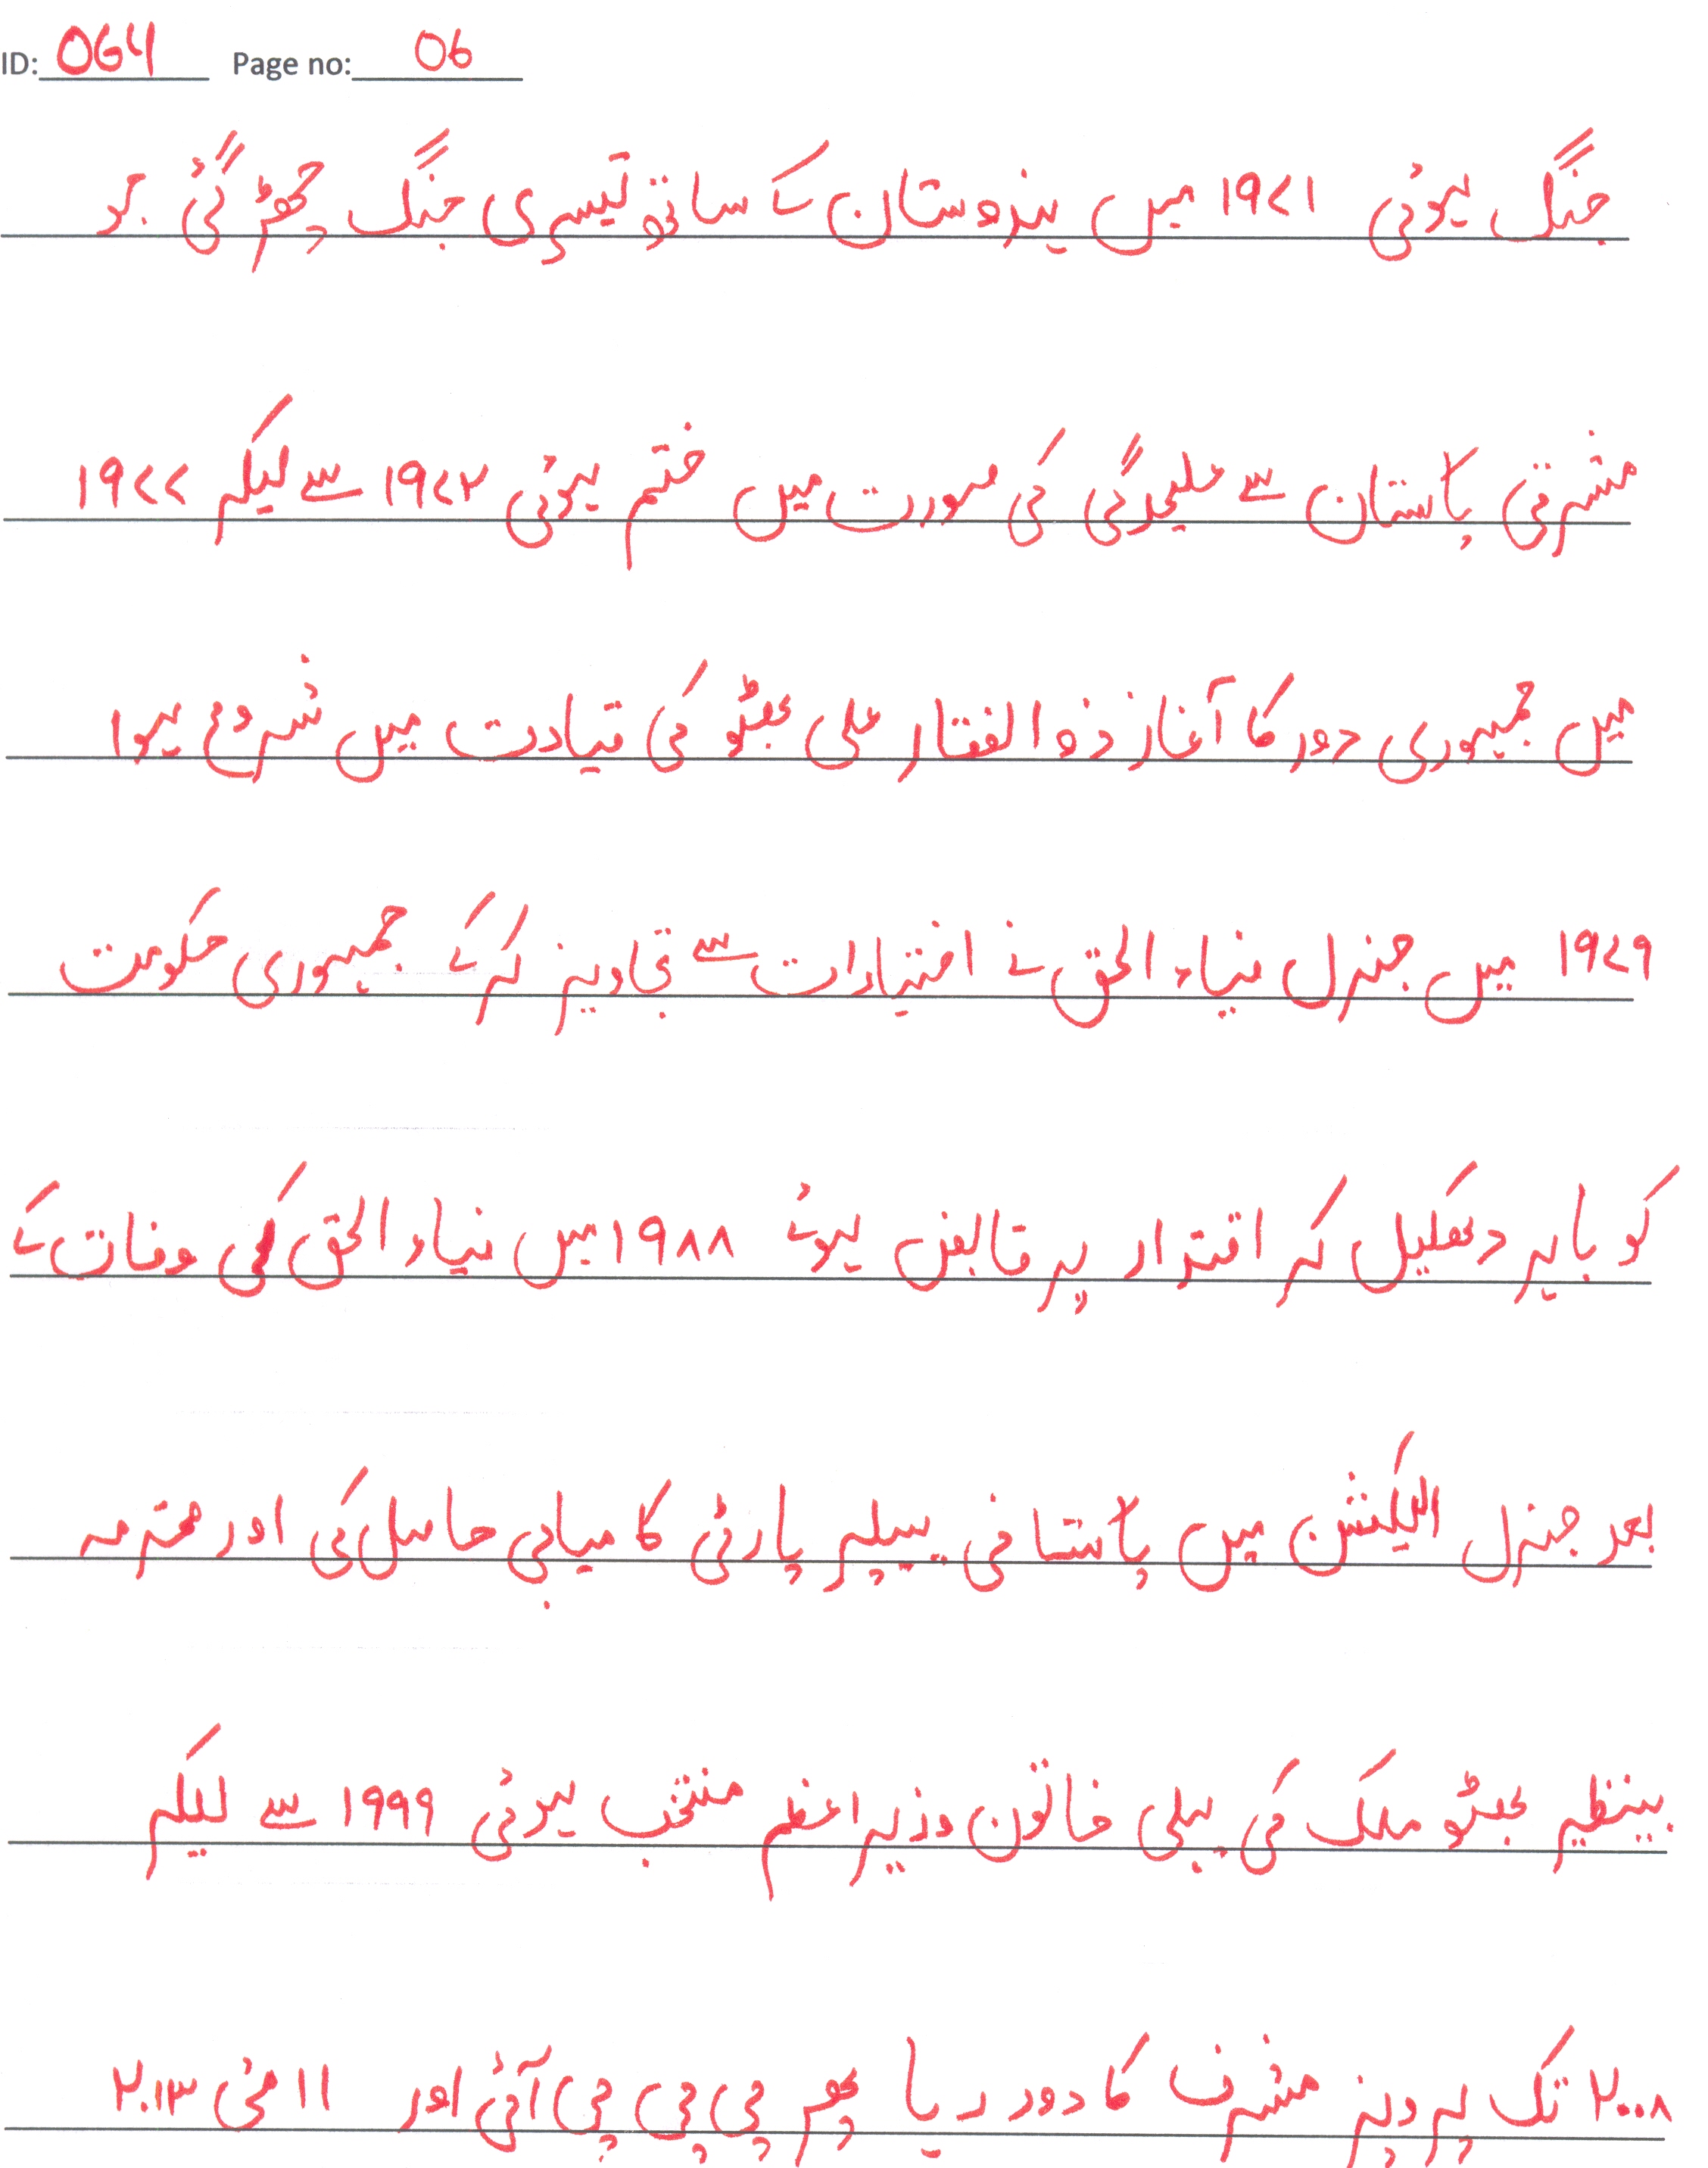 ID: 064 Page no: 06
جنگ ہوئی ۱۹۷۱ میں ہندوستان کے ساتھ تیسری جنگ چھڑ گئی جو
مشرقی پاکستان سے علیحدگی کی صورت میں ختم ہوئی ۱۹۷۳ سے لیکر ۱۹۷۷
میں جمہوری دور کا آغاز ذوالفقار علی بھٹو کی قیادت میں شروع ہوا
۱۹۷۹ میں جنرل ضیاء الحق نے اختیارات سے تجاویز کر کے جمہوری حکومت
کو باہر دھکیل کر اقتدار پر قابض ہوئے ۱۹۸۸ میں ضیاء الحق کی وفات کے
بعد جنرل الیکشن میں پاکستانی پیپلر پارٹی کامیابی حاصل کی اور محترمہ
بینظیر بھٹو ملک کی پہلی خاتون وزیراعظم منتخب ہوئی ۱۹۹۹ سے لیکر
۲۰۰۸ تک پرویز مشرف کا دور رہا پھر پی پی پی آئی اور ۱۱ مئی ۲۰۱۳